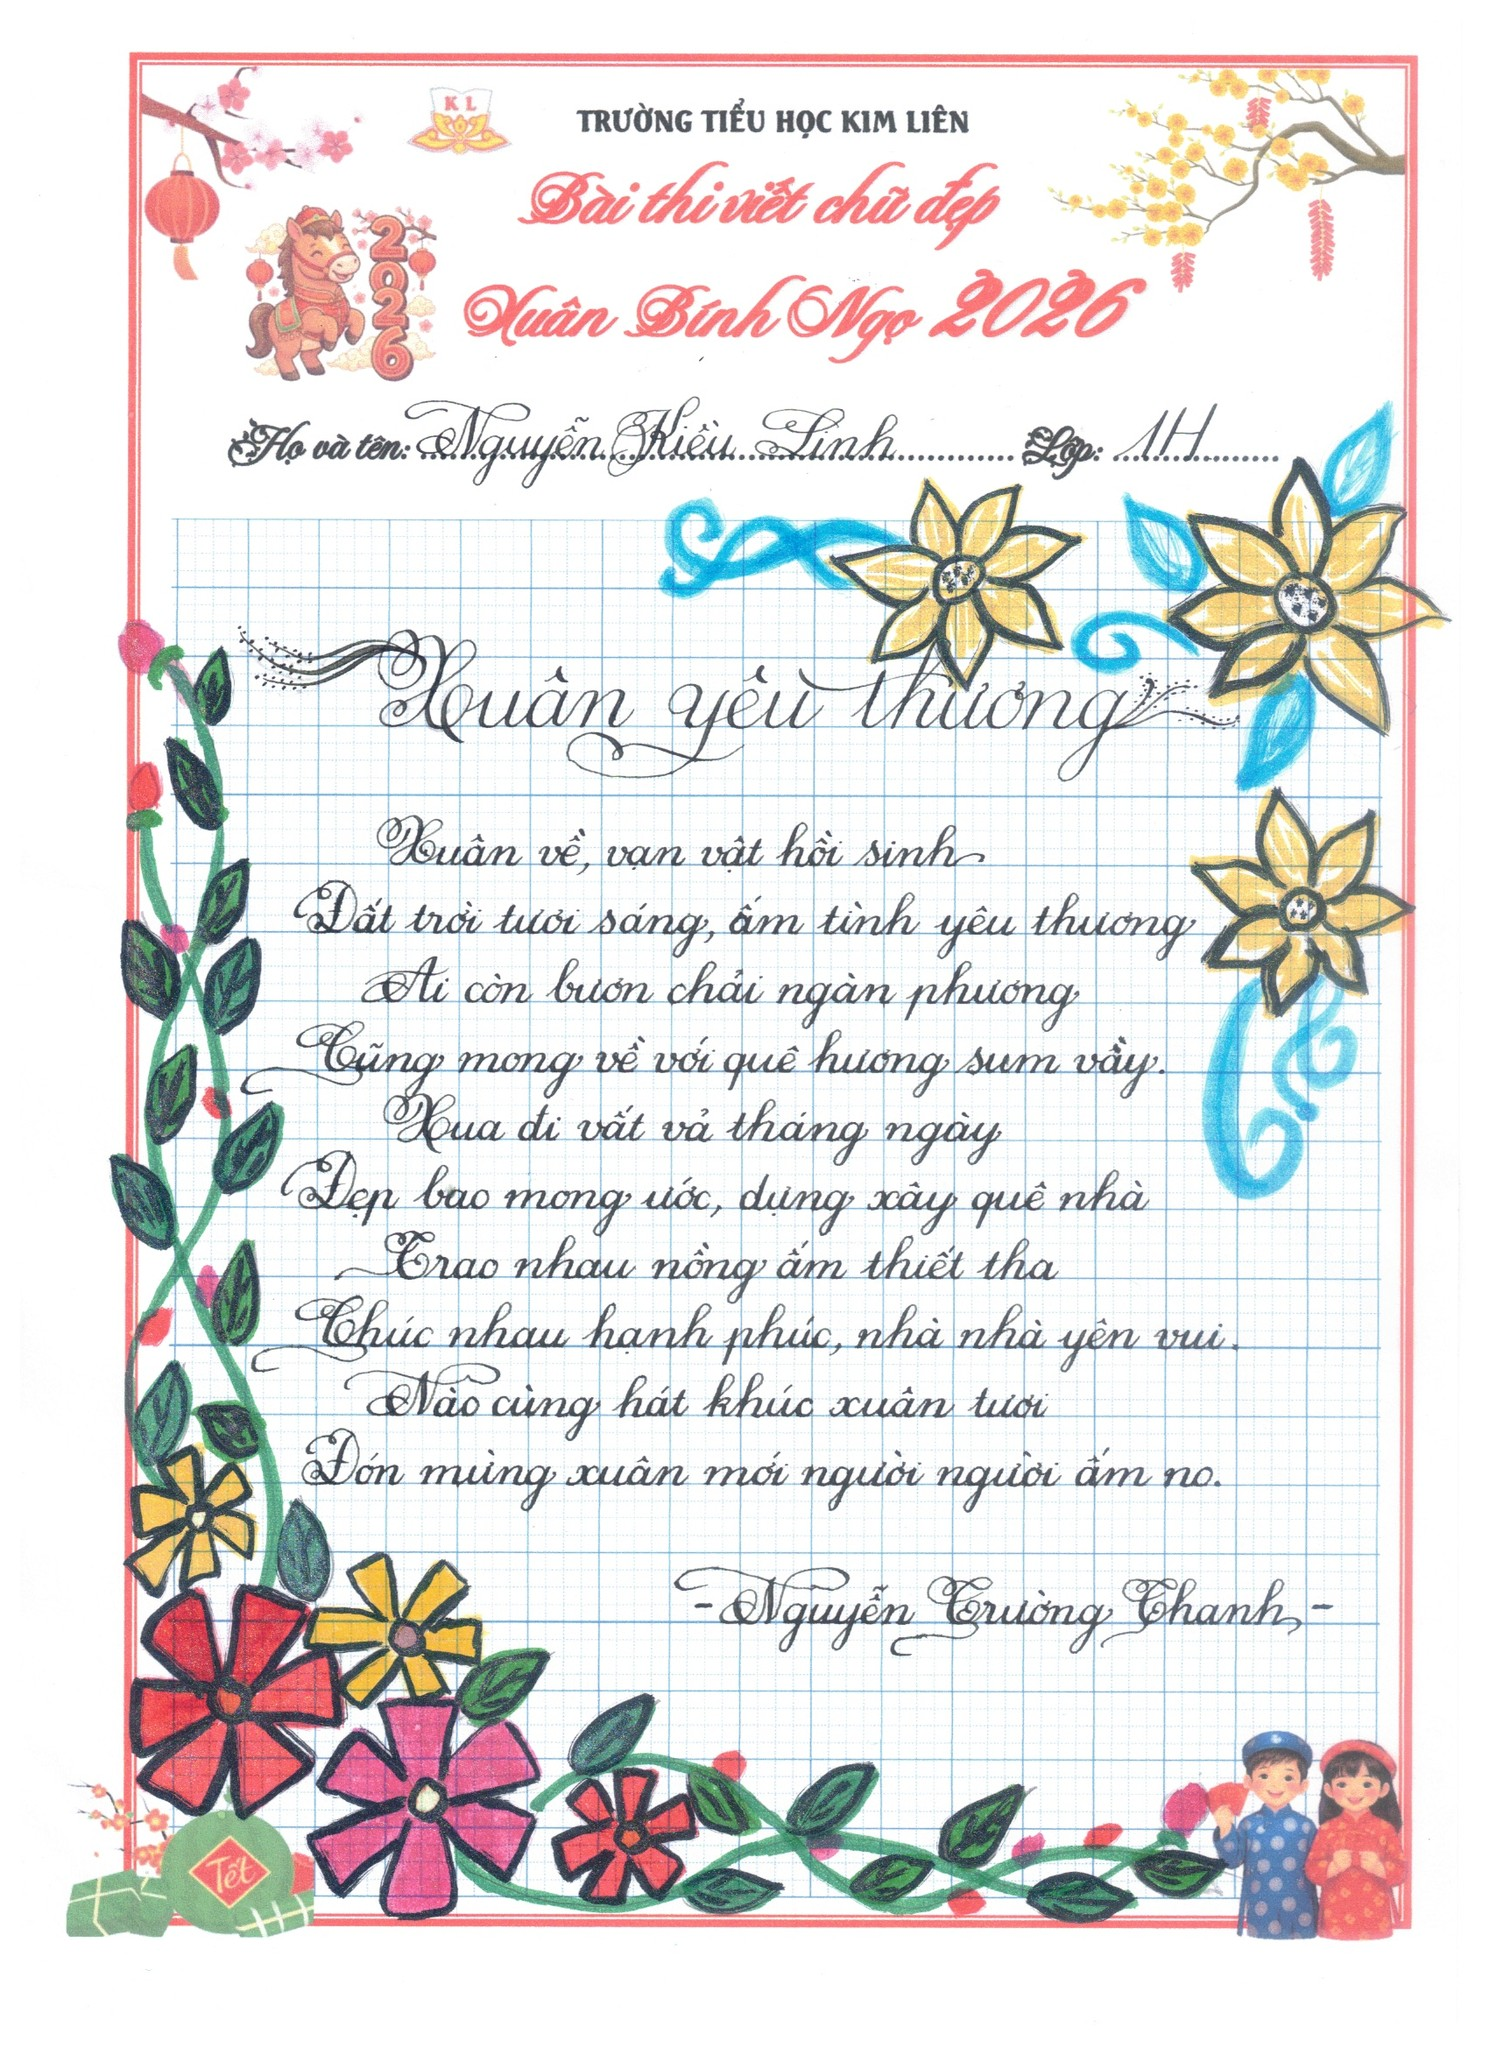 K L
TRƯỜNG TIỂU HỌC KIM LIÊN
Bài thi viết chữ đẹp
2026
Xuân Bính Ngọ 2026
Họ và tên: Nguyễn Kiều Linh Lớp: 1H
Xuân yêu thương
Xuân về, vạn vật hồi sinh
Đất trời tươi sáng, ấm tình yêu thương
Ai còn bươn chải ngàn phương
Cũng mong về với quê hương sum vầy.
Xua đi vất vả tháng ngày
Đẹp bao mong ước, dựng xây quê nhà
Trao nhau nồng ấm thiết tha
Chúc nhau hạnh phúc, nhà nhà yên vui.
Nào cùng hát khúc xuân tươi
Đón mừng xuân mới người người ấm no.
- Nguyễn Trường Thanh -
Tết